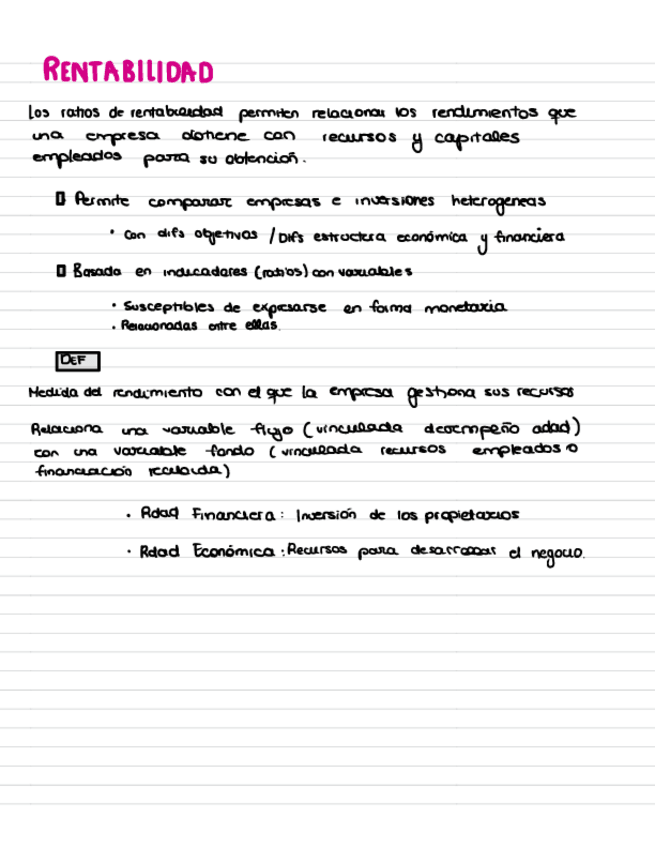 RENTABILIDAD
Los ratios de rentabilidad permiten relacionar los rendimientos que
una empresa obtiene con recursos y capitales
empleados para su obtención.
Permite comparar empresas e inversiones heterogeneas
· Con difs objetivos / Difs estructura económica y financiera
Basada en indicadores (ratios) con variables
· Susceptibles de expresarse en forma monetaria
· Relacionadas entre ellas.
DEF
Medida del rendimiento con el que la empresa gestiona sus recursos
Relaciona una variable flujo (vinculada desempeño adad)
con una variable fondo (vinculada recursos empleados o
financiación recibida)
· Rdad Financiera: Inversión de los propietarios
· Rdad Económica: Recursos para desarrollar el negocio.